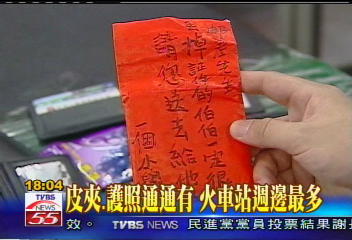 郵差先生
掉證件的伯伯一定很
請您送去給他
一個小學
18:04
皮夾.護照通通有 火車站週邊最多
TVBS
NEWS
55
效。 TVBS 民進黨黨員投票結果謝